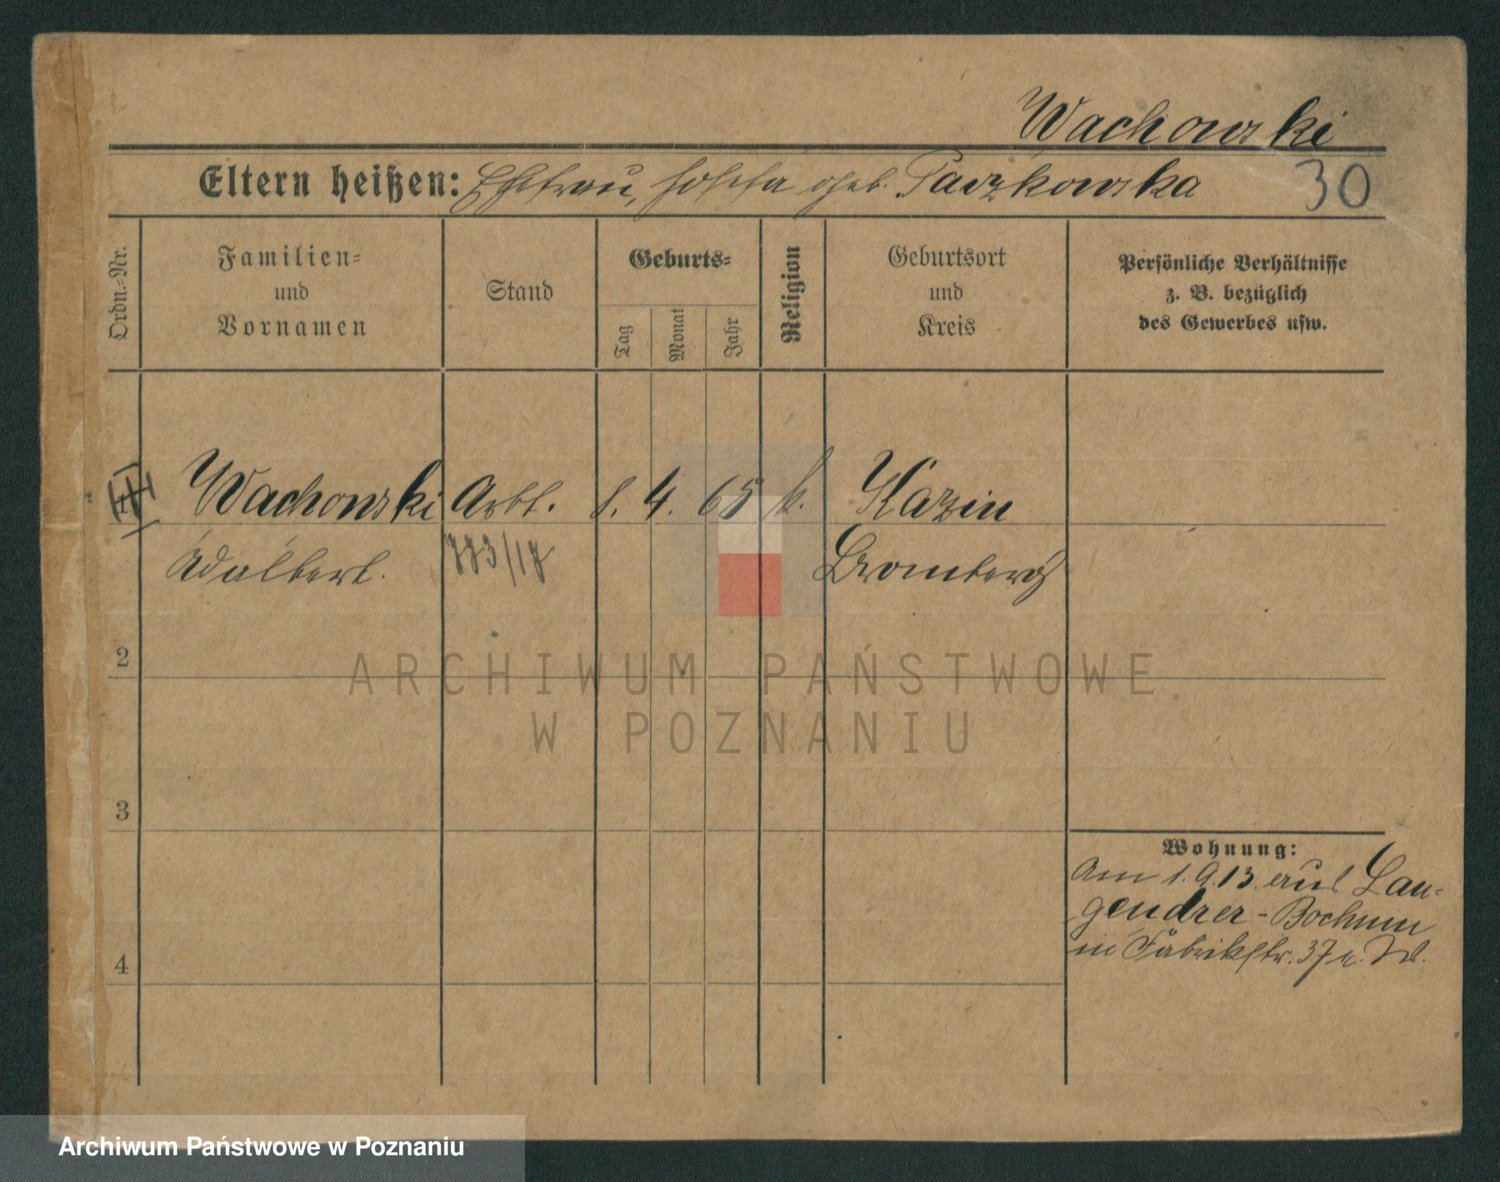 Wachowski
Eltern heißen: Ehefrau, Josefa geb. Paszkowska
30
Ordn.-Nr.
Familien-
und
Vornamen
Stand
Geburts-
Tag
Monat
Jahr
Religion
Geburtsort
und
Kreis
Persönliche Verhältnisse
z. B. bezüglich
des Gewerbes usw.
Wachowski Arbt. 4. 65 k. Kazin
Adalbert. Bromberg
2
3
4
Wohnung:
Am 1.9.13. aus Lan-
gendreer-Bochum
in Fabrikstr. 37
ARCHIWUM PAŃSTWOWE
W POZNANIU
Archiwum Państwowe w Poznaniu